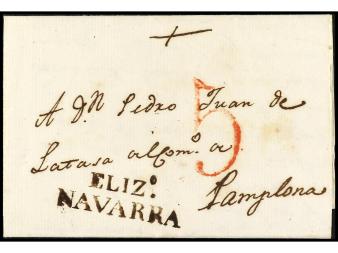 A Dn Pedro Juan de
5
Latasa
ELIZº.
NAVARRA
Pamplona